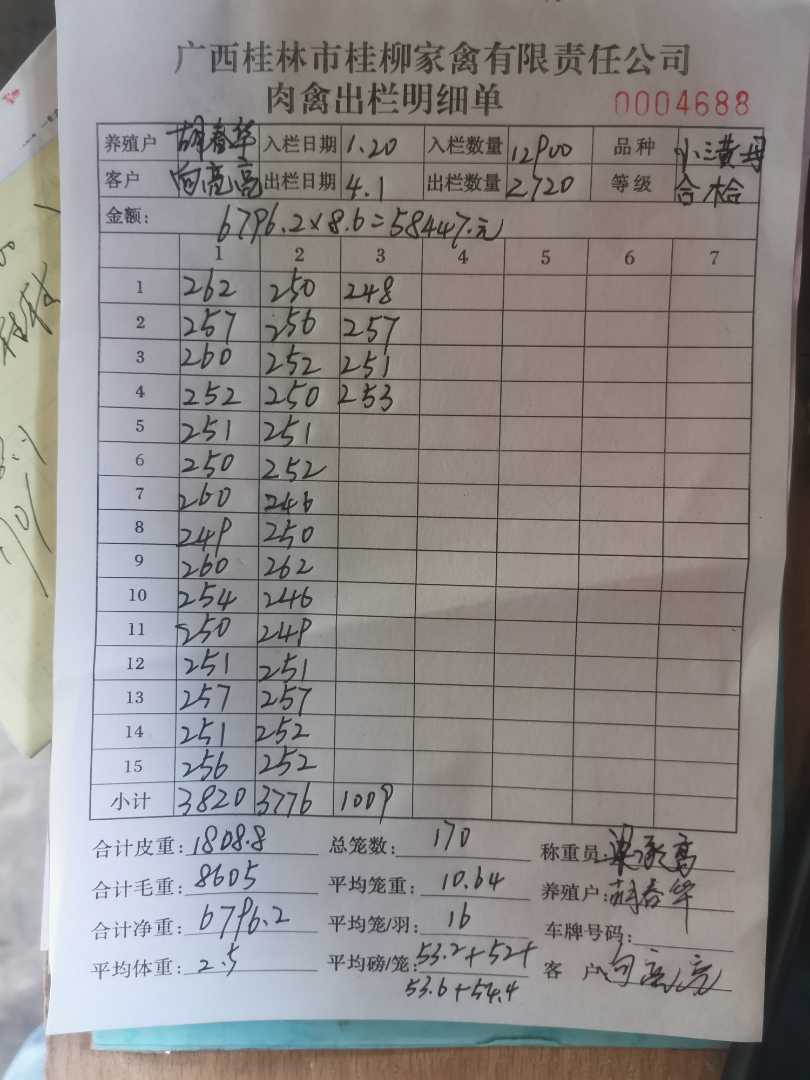 广西桂林市桂柳家禽有限责任公司
肉禽出栏明细单 0004688
养殖户 胡春华 入栏日期 1.20 入栏数量 12900 品种 小黄母
客户 向亮亮 出栏日期 4.1 出栏数量 2720 等级 合格
金额: 6796.2×8.6=58447.元
1 2 3 4 5 6 7
1 262 250 248
2 257 256 257
3 260 252 251
4 252 250 253
5 251 251
6 250 252
7 260 246
8 249 250
9 260 262
10 254 246
11 250 249
12 251 251
13 257 257
14 251 252
15 256 252
小计 3820 3776 1009
合计皮重: 1808.8 总笼数: 170 称重员:
合计毛重: 8605 平均笼重: 10.64 养殖户: 胡春华
合计净重: 6796.2 平均笼/羽: 16 车牌号码:
平均体重: 2.5 平均磅/笼: 53.2+52+ 客户:
53.6+54.4